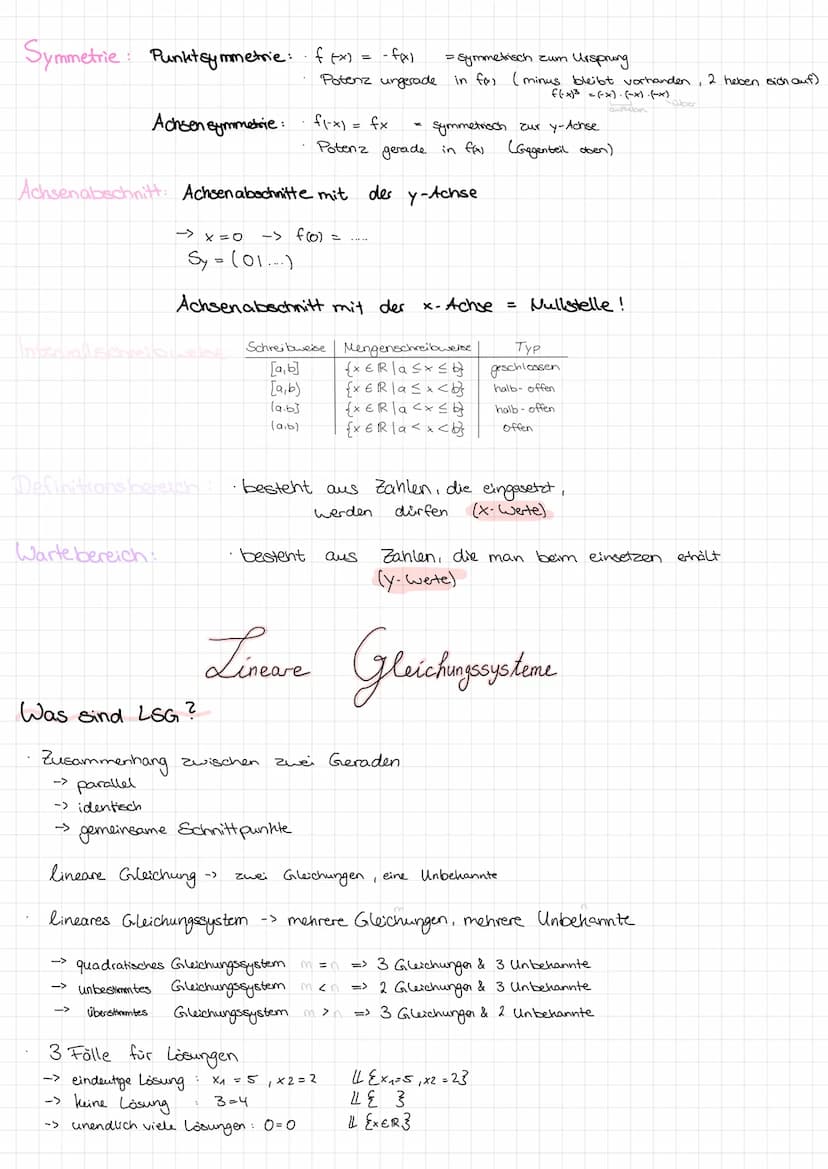 Symmetrie: Punktsymmetrie: · f(-x) = -f(x) = symmetrisch zum Ursprung
· Potenz ungerade in f(x) (minus bleibt vorhanden, 2 heben sich auf)
f(-x)³ = (-x)·(-x)·(-x)
Achsensymmetrie: · f(-x) = fx = symmetrisch zur y-Achse
· Potenz gerade in f(x) (Gegenteil oben)
Achsenabschnitt: Achsenabschnitte mit der y-Achse
-> x=0 -> f(0) = .....
Sy = (0|...)
Achsenabschnitt mit der x-Achse = Nullstelle!
Intervallschreibweise Schreibweise | Mengenschreibweise | Typ
[a,b] {x ∈ ℝ | a ≤ x ≤ b} geschlossen
[a,b) {x ∈ ℝ | a ≤ x < b} halb-offen
(a,b] {x ∈ ℝ | a < x ≤ b} halb-offen
(a,b) {x ∈ ℝ | a < x < b} offen
Definitionsbereich: · besteht aus Zahlen, die eingesetzt,
werden dürfen (x-Werte)
Wartebereich: · besteht aus Zahlen, die man beim einsetzen erhält
(y-Werte)
Lineare Gleichungssysteme
Was sind LSG?
· Zusammenhang zwischen zwei Geraden
-> parallel
-> identisch
-> gemeinsame Schnittpunkte
lineare Gleichung -> zwei Gleichungen, eine Unbekannte
m n
· lineares Gleichungssystem -> mehrere Gleichungen, mehrere Unbekannte
-> quadratisches Gleichungssystem m = n => 3 Gleichungen & 3 Unbekannte
-> unbestimmtes Gleichungssystem m < n => 2 Gleichungen & 3 Unbekannte
-> überstimmtes Gleichungssystem m > n => 3 Gleichungen & 2 Unbekannte
· 3 Fälle für Lösungen
-> eindeutge Lösung : x1 = 5, x2 = 2 𝕃 {x1=5, x2=2}
-> keine Lösung : 3=4 𝕃 { }
-> unendlich viele Lösungen: 0=0 𝕃 {x∈ℝ}